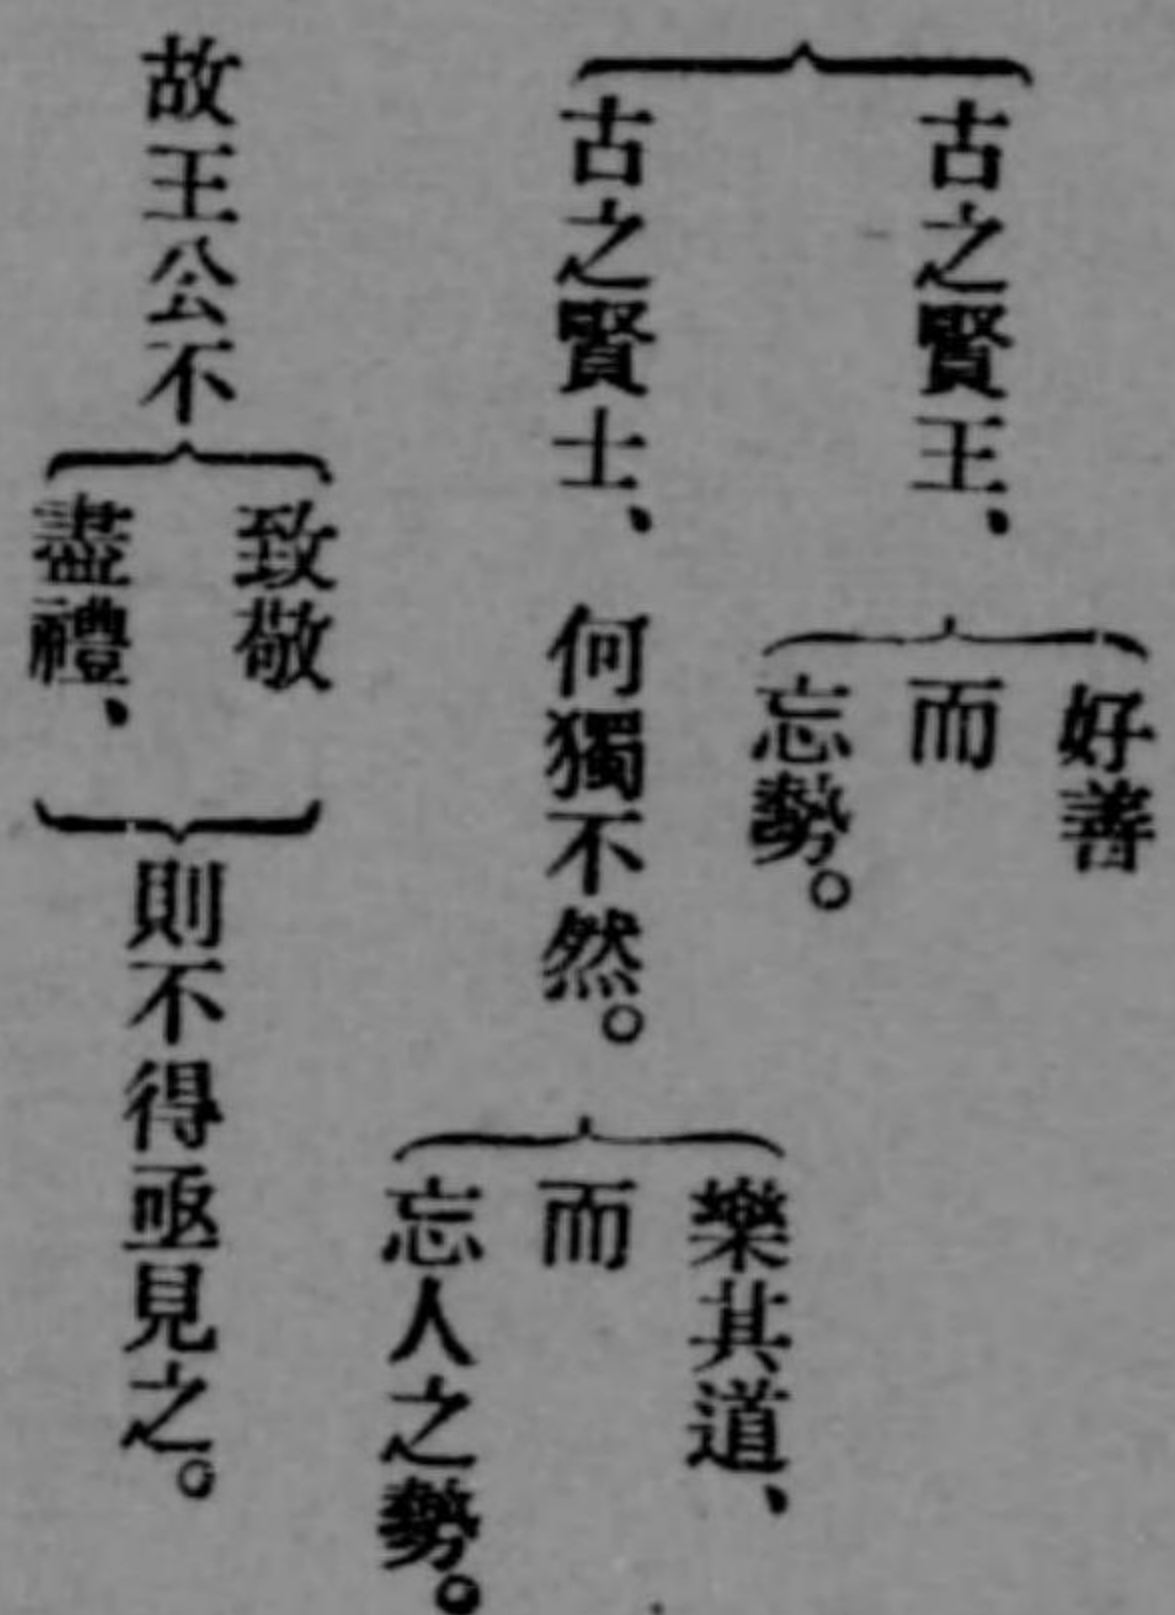 古之賢王、
好善
而
忘勢。
古之賢士、何獨不然。
樂其道、
而
忘人之勢。
故王公不
致敬
盡禮、
則不得亟見之。